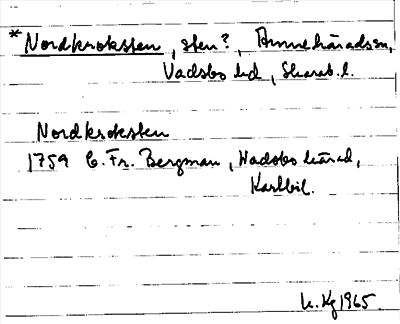 *Nordkroksten, sten?, Amnehäradsn,
Vadsbo hd, Skarab. l.
Nordkroksten
1759 C. Fr. Bergman, Wadsbo härad,
Kartbil.
U. Kg 1965